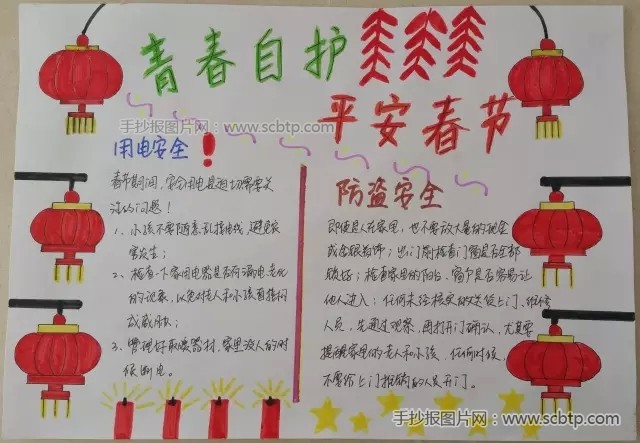 青春自护
平安春节
手抄报图片网：www.scbtp.com
用电安全！
春节期间，安全用电是迫切需要关
注的问题！
1、小孩不要随意乱接电线，避免灾
害发生；
2、检查一下家用电器是否有漏电老化
的现象，以免对老人和小孩直接构
成威胁；
3、管理好取暖器材，家里没人的时
候断电。
防盗安全
即使是人在家里，也不要放大量的现金
或金银首饰；出门前检查门窗是否全部
锁好；检查家里的阳台、窗户是否容易让
他人进入；任何未经核实的送货上门、维修
人员，先通过观察，再打开门确认，尤其要
提醒家里的老人和小孩，任何时候，
不要给上门推销的人员开门。
手抄报图片网：www.scbtp.com